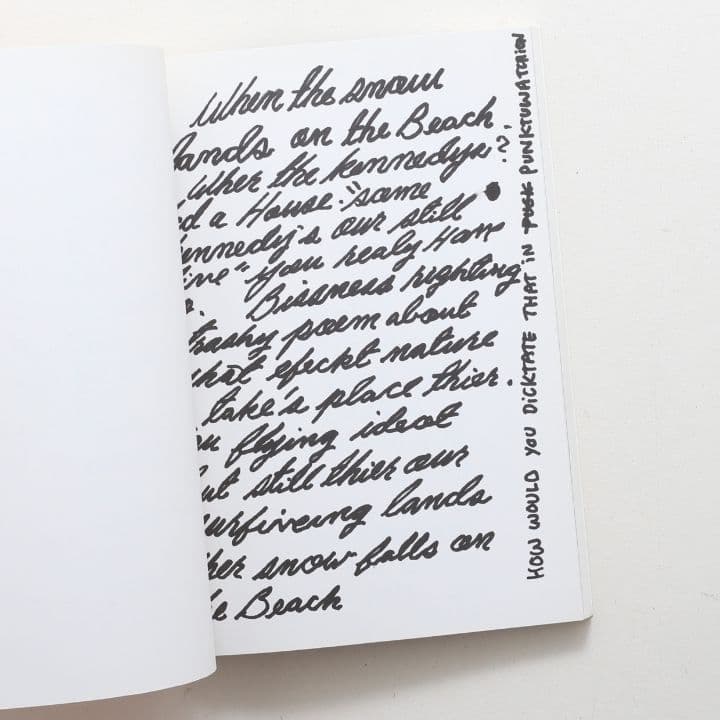 When the snow
lands on the Beach
Wher the kennedys
d a House. "some
ennedy's our still
ive" you realy Hav
Bissness righting
trashy poem about
what efeckt nature
take's place thier.
flying ideot
ut still thier our
urfiveing lands
her snow falls on
e Beach
HOW WOULD YOU DiCKTATE THAT iN PUSK PUNKTUWATCHiON ?,